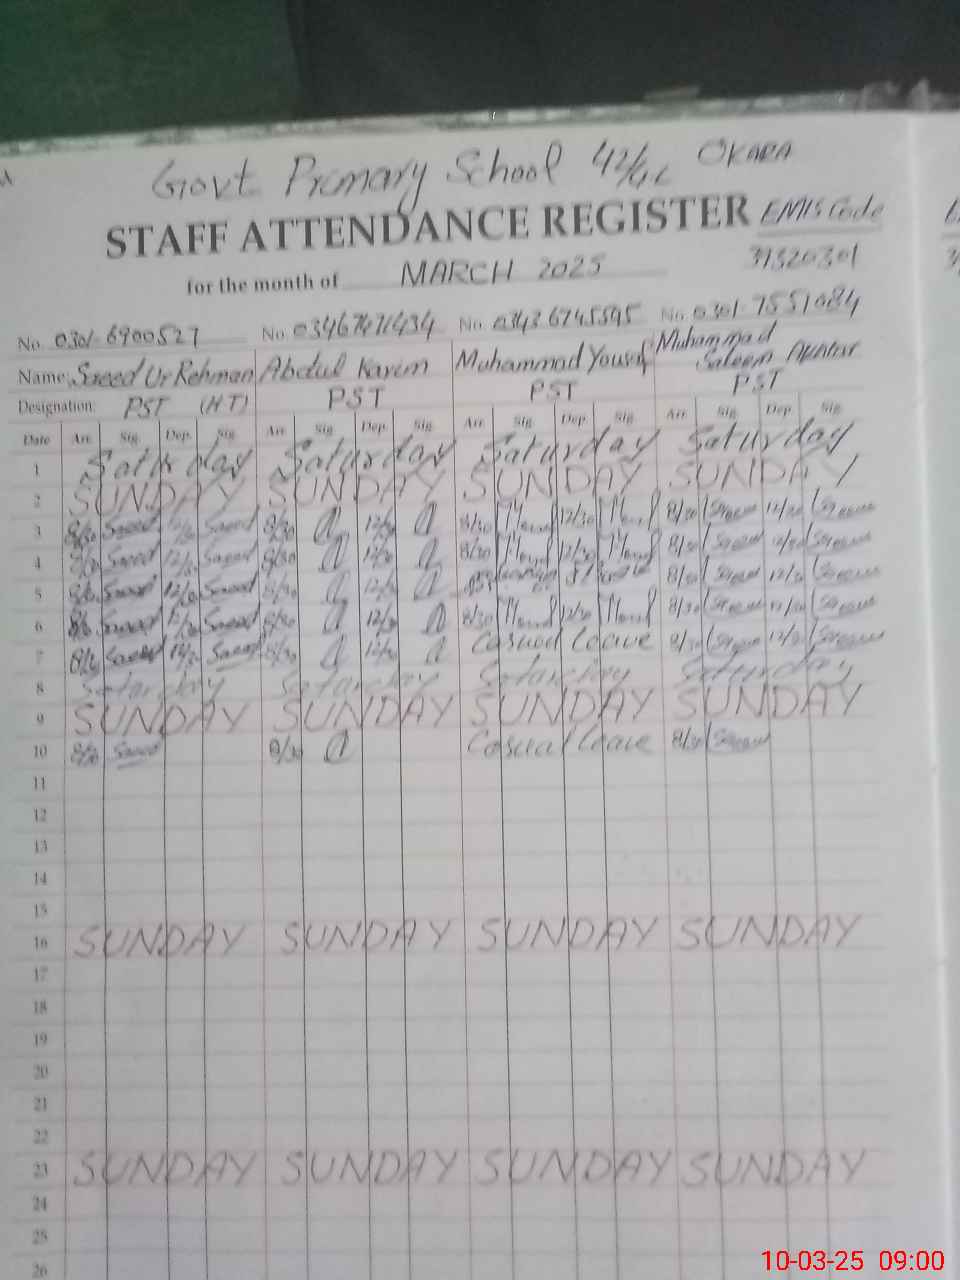 Govt. Primary School 42/4L OKARA
STAFF ATTENDANCE REGISTER EMIS Code
for the month of MARCH 2025 31320301
No. 0301-6900527 No. 03467471434 No. 03436745595 No. 0301-7551084
Name: Saeed Ur Rehman Abdul Karim Muhammad Yousaf Muhammad Saleem Akhtar
Designation: PST (HT) PST PST PST
Date Arr. Sig. Dep. Sig. Arr. Sig. Dep. Sig. Arr. Sig. Dep. Sig. Arr. Sig. Dep. Sig.
1 Saturday Saturday Saturday Saturday
2 SUNDAY SUNDAY SUNDAY SUNDAY
3 8/30 Saeed 12/30 Saeed 8/30 12/30 8/30 12/30 8/30 12/30
4 8/30 Saeed 12/30 Saeed 8/30 12/30 8/30 12/30 8/30 12/30
5 8/30 Saeed 12/30 Saeed 8/30 12/30 8/30 12/30
6 8/30 Saeed 12/30 Saeed 8/30 12/30 8/30 12/30 8/30 12/30
7 8/30 Saeed 12/30 Saeed 8/30 12/30 Casual leave 8/30 12/30
8 Saturday Saturday Saturday Saturday
9 SUNDAY SUNDAY SUNDAY SUNDAY
10 8/30 Saeed 8/30 Casual leave 8/30
11
12
13
14
15
16 SUNDAY SUNDAY SUNDAY SUNDAY
17
18
19
20
21
22
23 SUNDAY SUNDAY SUNDAY SUNDAY
24
25
26
10-03-25 09:00